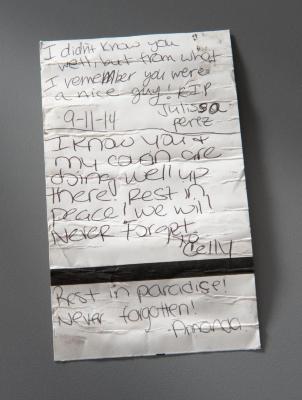 I didn't know you
well, but from what
I remember you were
a nice guy! RIP
Julissa
9-11-14 perez
I know you &
my cousin are
doing well up
there! Rest in
peace! we will
Never Forget
Celly
Rest in paradise!
Never forgotten!
-Amanda